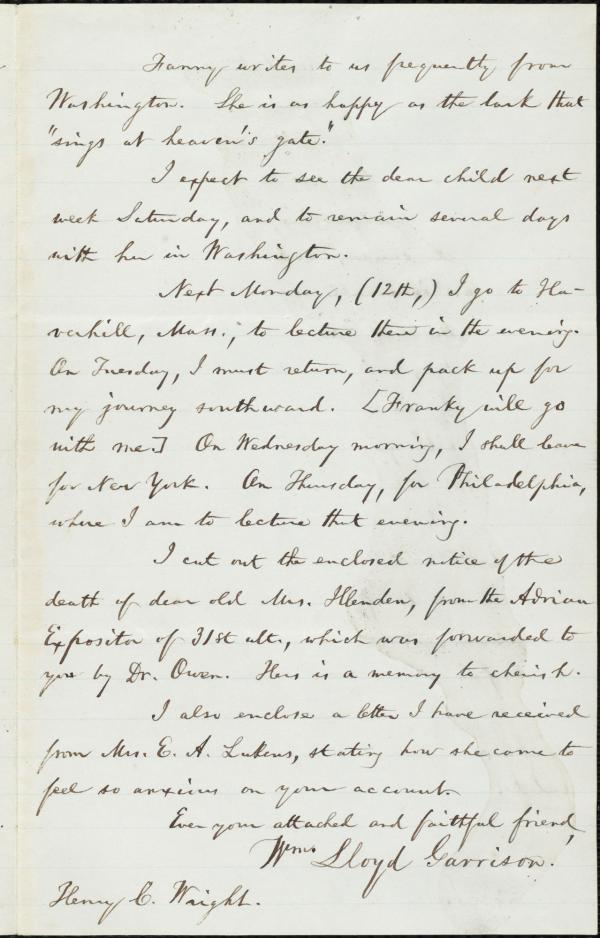 Fanny writes to us frequently from
Washington. She is as happy as the lark that
"sings at heaven's gate."
I expect to see the dear child next
week Saturday, and to remain several days
with her in Washington.
Next Monday, (12th,) I go to Ha-
verhill, Mass., to lecture there in the evening.
On Tuesday, I must return, and pack up for
my journey southward. [Franky will go
with me.] On Wednesday morning, I shall leave
for New York. On Thursday, for Philadelphia,
where I am to lecture that evening.
I cut out the enclosed notice of the
death of dear old Mrs. from the Adrian
Expositor of 31st ult., which was forwarded to
you by Dr. Owen. Hers is a memory to cherish.
I also enclose a letter I have received
from Mrs. E. A. Lukens, stating how she came to
feel so anxious on your account.
Ever your attached and faithful friend,
Wm. Lloyd Garrison.
Henry C. Wright.